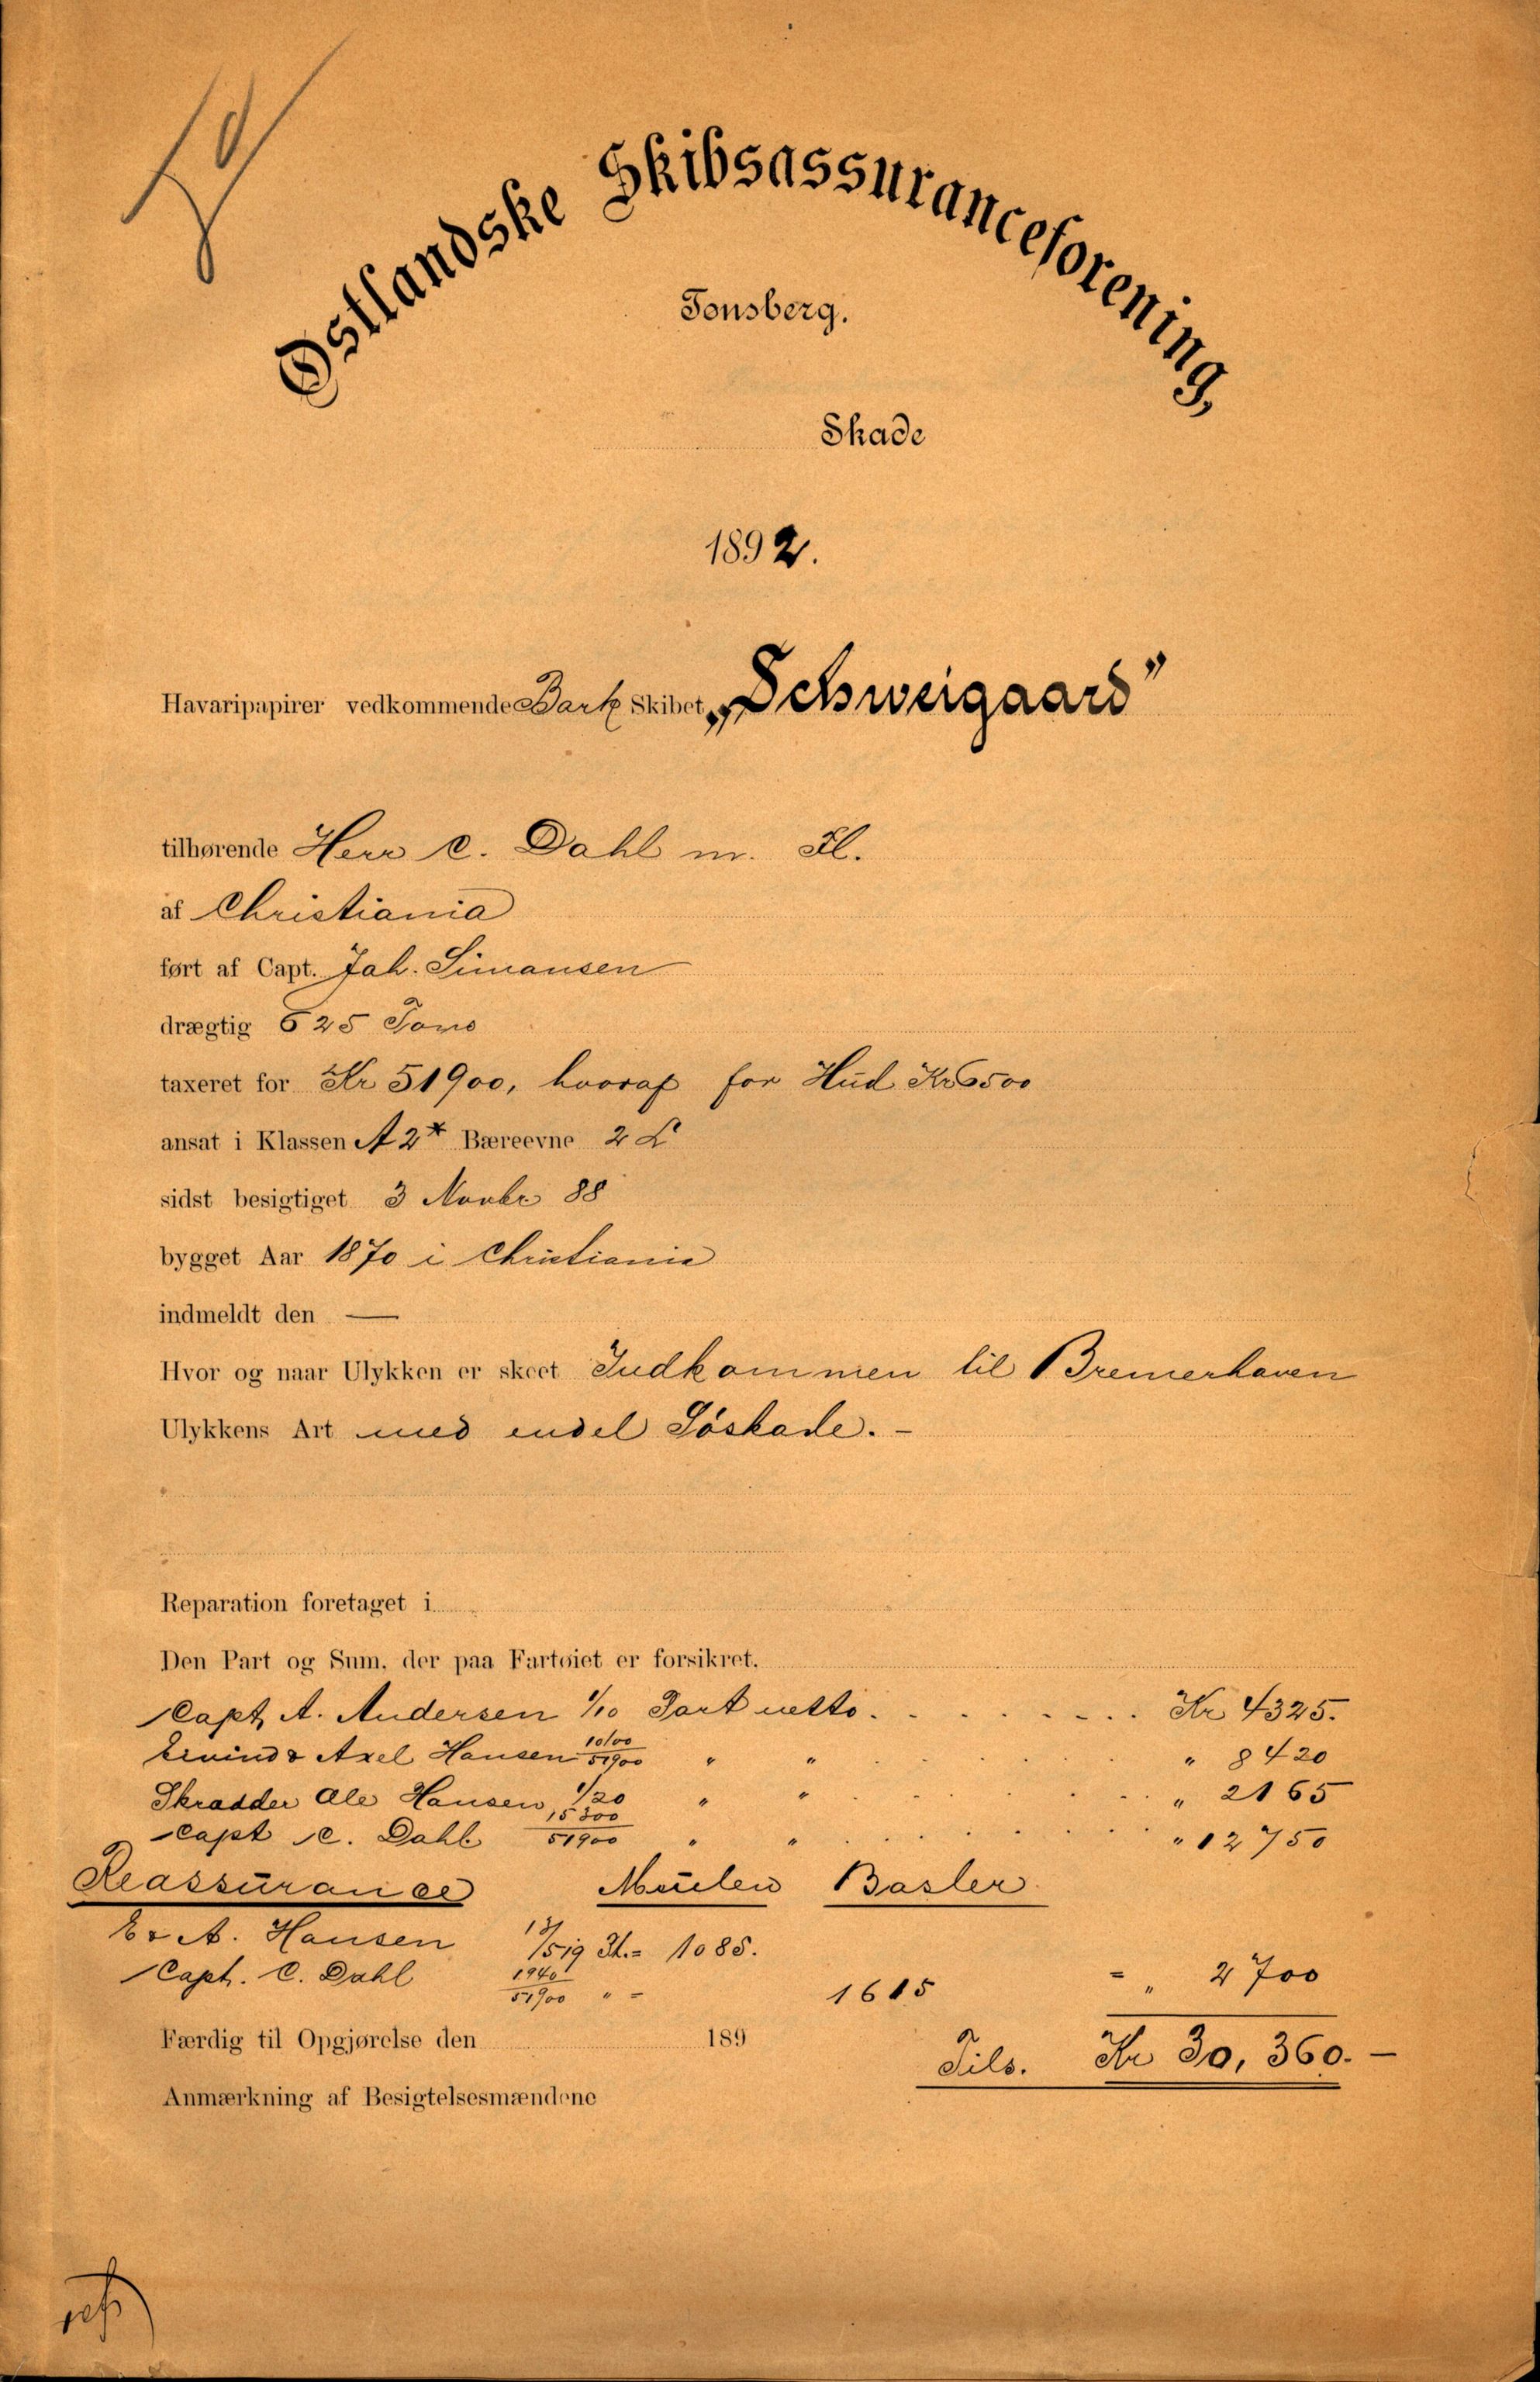 Østlandske Skibsassuranceforening,
Tønsberg.
Skade
1892.
Havaripapirer vedkommende Bark Skibet „Schweigaard”
tilhørende Herr C. Dahl m. Fl.
af Christiania
ført af Capt. Joh. Simonsen
drægtig 525 Tons
taxeret for Kr 51900, hvoraf for Hud Kr 6500
ansat i Klassen A 2* Bæreevne 2 L
sidst besigtiget 3 Novbr 88
bygget Aar 1870 i Christiania
indmeldt den —
Hvor og naar Ulykken er skeet Indkommen til Bremerhaven
Ulykkens Art med endel Søskade. -
Reparation foretaget i
Den Part og Sum, der paa Fartøiet er forsikret.
Capt A. Andersen 1/10 Part netto. Kr 4325.
Eivind & Axel Hansen 10100/51900 " " " 8420
Skradder Ole Hansen, 1/20 " " " 2165
Capt C. Dahl 15300/51900 " " " 12750
Reassurance Moulen Basler
E & A. Hansen 13/519 Pt. = 1085.
Capt. C. Dahl 1940/51900 " = 1615 = " 2700
Færdig til Opgjørelse den 189
Tils. Kr 30,360. —
Anmærkning af Besigtelsesmændene